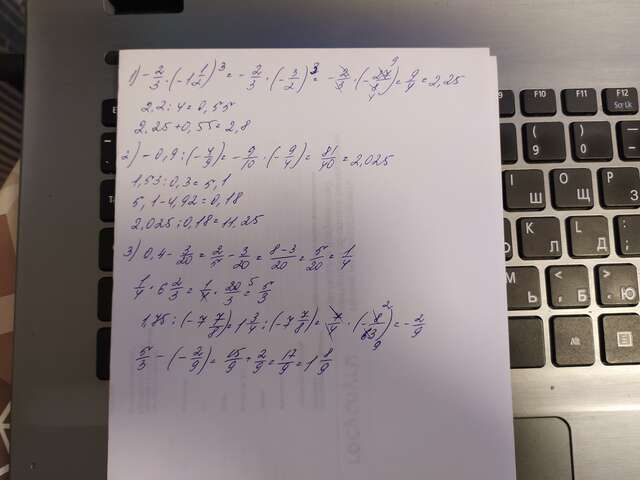 1) -2/3 · (-1 1/2)³ = -2/3 · (-3/2)³ = -2/3 · (-27/8) = 9/4 = 2,25
2,2 : 4 = 0,55
2,25 + 0,55 = 2,8
2) -0,9 : (-4/9) = -9/10 · (-9/4) = 81/40 = 2,025
1,53 : 0,3 = 5,1
5,1 - 4,92 = 0,18
2,025 : 0,18 = 11,25
3) 0,4 - 3/20 = 2/5 - 3/20 = 8-3/20 = 5/20 = 1/4
1/4 · 6 2/3 = 1/4 · 20/3 = 5/3
1,75 : (-7 7/8) = 1 3/4 : (-7 7/8) = 7/4 · (-8/63) = -2/9
5/3 - (-2/9) = 15/9 + 2/9 = 17/9 = 1 8/9
F10 F11 F12
Scr Lk
( 9
) 0
Ш
Щ